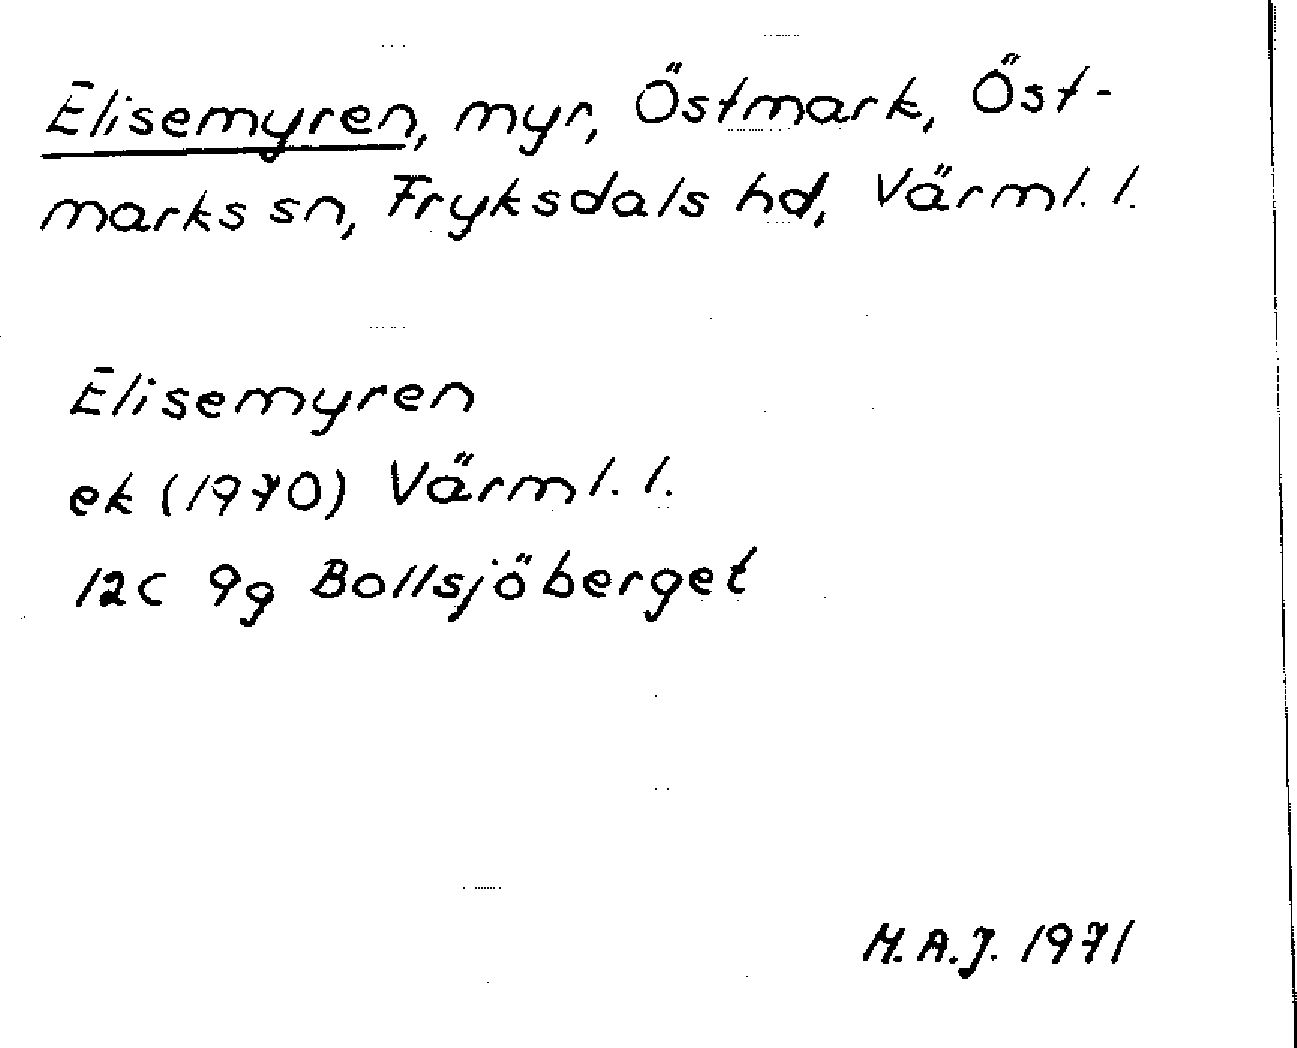 Elisemyren, myr, Östmark, Öst-
marks sn, Fryksdals hd, Värml. l.
Elisemyren
ek (1970) Värml. l.
12C 9g Bollsjöberget
M.A.J. 1971